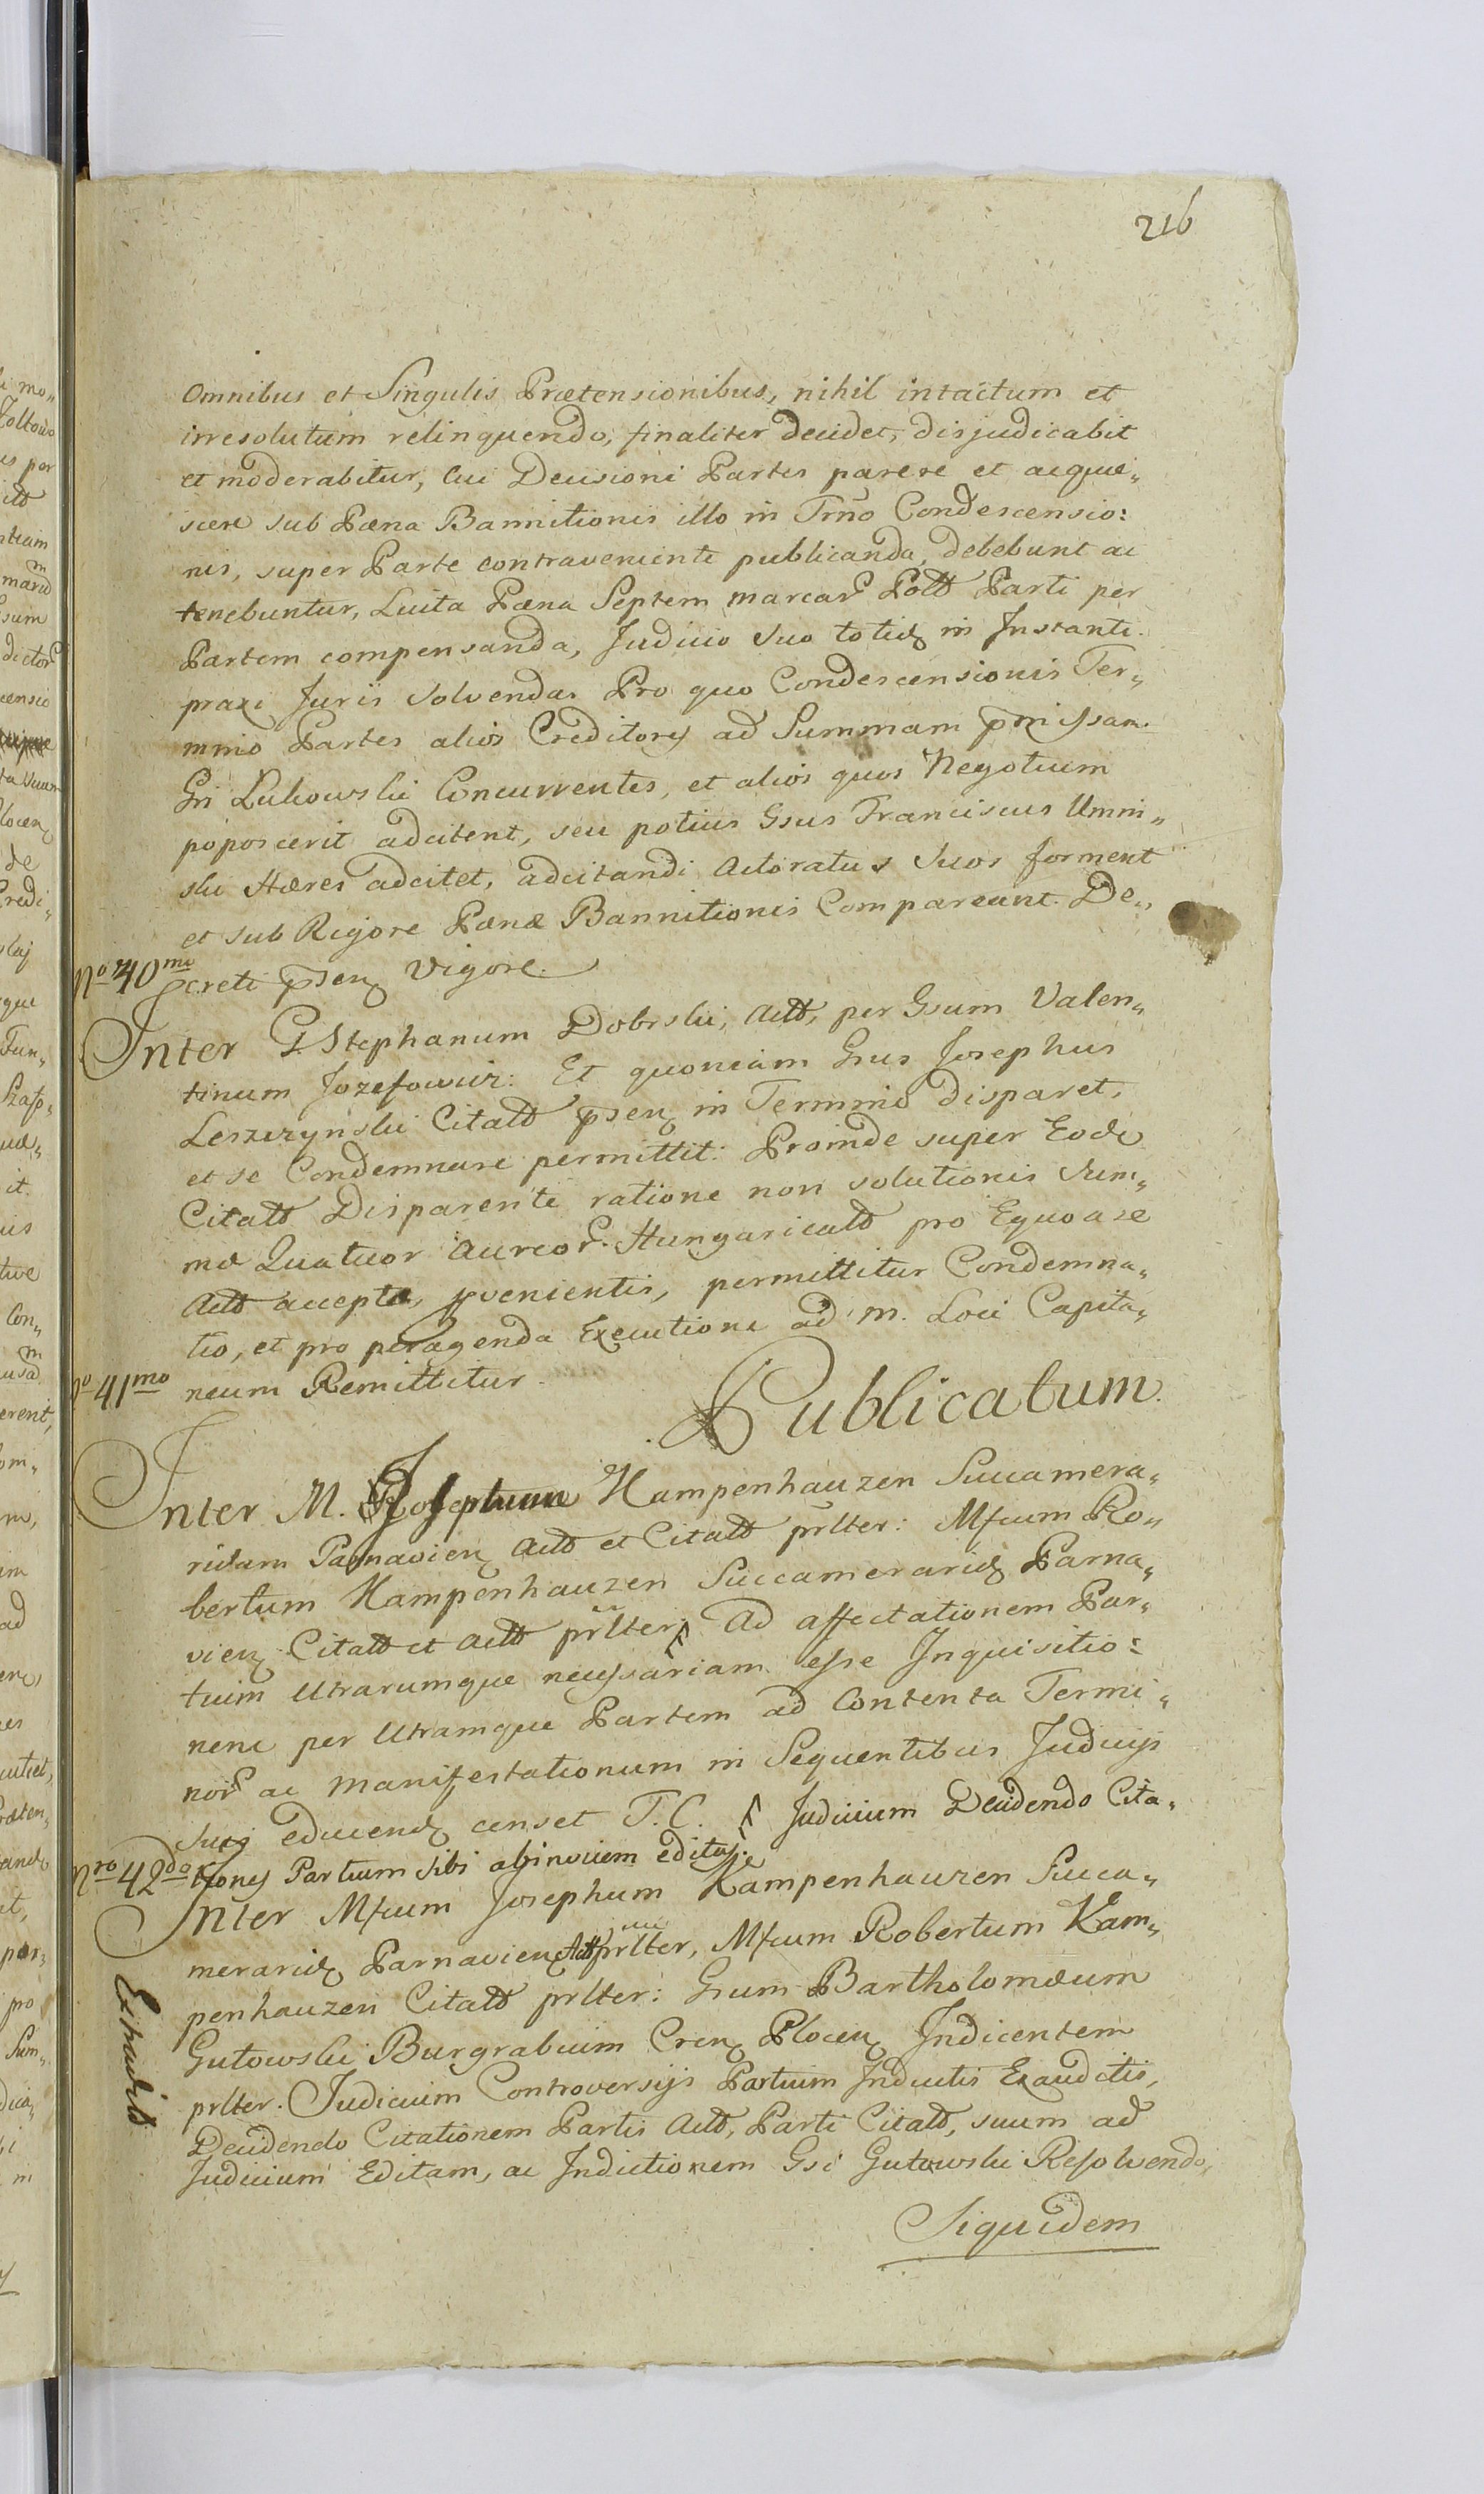 216
Omnibus et Singulis Prætensionibus, nihil intactum et
irresolutum relinquendo, finaliter decidet, disjudicabit
et moderabitur, Cui Decisioni Partes parere et acquie„
scere sub Pæna Bannitionis illo in Trño Condescensio:
nis, super Parte contraveniente publicanda, debebunt ac
tenebuntur, Luita Pæna Septem marcar Poltt Parti per
Partem compensanda, Judicio Suo totidȩ in Instanti
praxi Juris Solvenda. Pro quo Condescensionis Ter„
mino Partes alios Creditores ad Summam pmissam
Gsi Lukowski Concurrentes, et alios quos Negotium
poposcerit adcitent, seu potius Gsus Franciscus Umin„
ski Hæres adcitet, adcitandi Actoratus Suos forment
et sub Rigore Pænæ Bannitionis Compareant. De„
No 40mo
creti psenȩ vigore.
Inter G. Stephanum Dobrski, Actt, per Gsum Valen„
tinum Jozefowicz: Et quoniam Gsus Josephus
Leszczynski Citatt psenȩ in Termino disparet,
et se Condemnare permittit: Proinde super Eodȩ
Citatt Disparente ratione non solutionis Sum„
mæ Quatuor Aureor Hungaricatt pro Equo a se
Actt accepto, pvenientis, permittitur Condemna„
tio, et pro peragenda Executione ad M. Loci Capita„
No 41mo
neum Remittitur.
Publicatum.
Inter M. Josephum Kampenhauzen Succamera„
ridam Parnavienȩ Actt et Citatt prlter: Mfcum Ro„
bertum Kampenhauzen Succameraridȩ Parna„
vienȩ Citatt et Actt prlter, Ad affectationem Par„
tium Utrarumque necessariam esse Inquisitio:
nem per Utramque Partem ad Contenta Termi„
nor ac Manifestationum in Sequentibus Judicijs
Suis educendȩ censet J. C. Judicium Decidendo Cita„
Nro 42do
tiones Partium sibi abinvicem editas.
Inter Mfcum Josephum Kampenhauzen Succa„
meraridȩ Parnavienȩ Actt prlter, Mfcum Robertum Kam„
penhauzen Citatt prlter: Gsum Bartholomæum
Gutowski Burgrabium Crenȩ Plocenȩ Indicentem
prlter. Judicium Controversijs Partium Inductis Exauditis,
Decidendo Citationem Partis Actt, Parti Citatt, suum ad
Judicium Editam, ac Indictionem Gsi Gutowski Resolvendo,
Siquidem